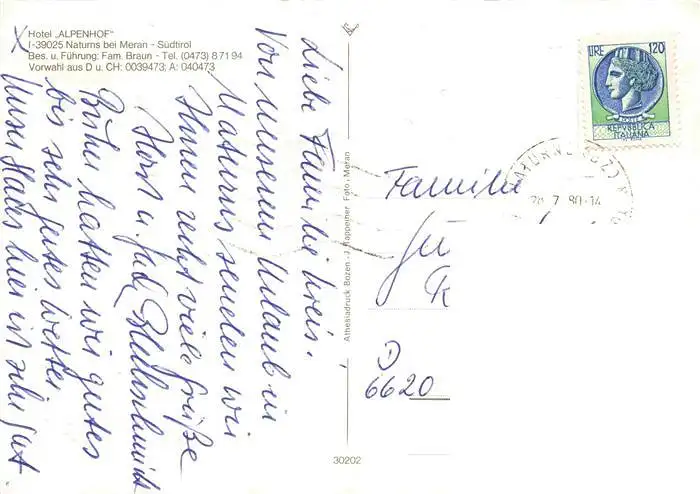 Hotel „ALPENHOF"
I-39025 Naturns bei Meran - Südtirol
Bes. u. Führung: Fam. Braun - Tel. (0473) 87194
Vorwahl aus D u. CH: 0039473; A: 040473
X
Liebe Familie Kreis!
Von unserem Urlaub in
Naturns senden wir
Ihnen recht viele Grüße
Horst u.
Bisher hatten wir gutes
bis sehr gutes Wetter
Unser Haus hier ist sehr gut
Athesiadruck Bozen - J. Rappeiner Foto: Meran
30202
LIRE 120
REPVBBLICA
ITALIANA
28 7 80-14
Familie
D
6620